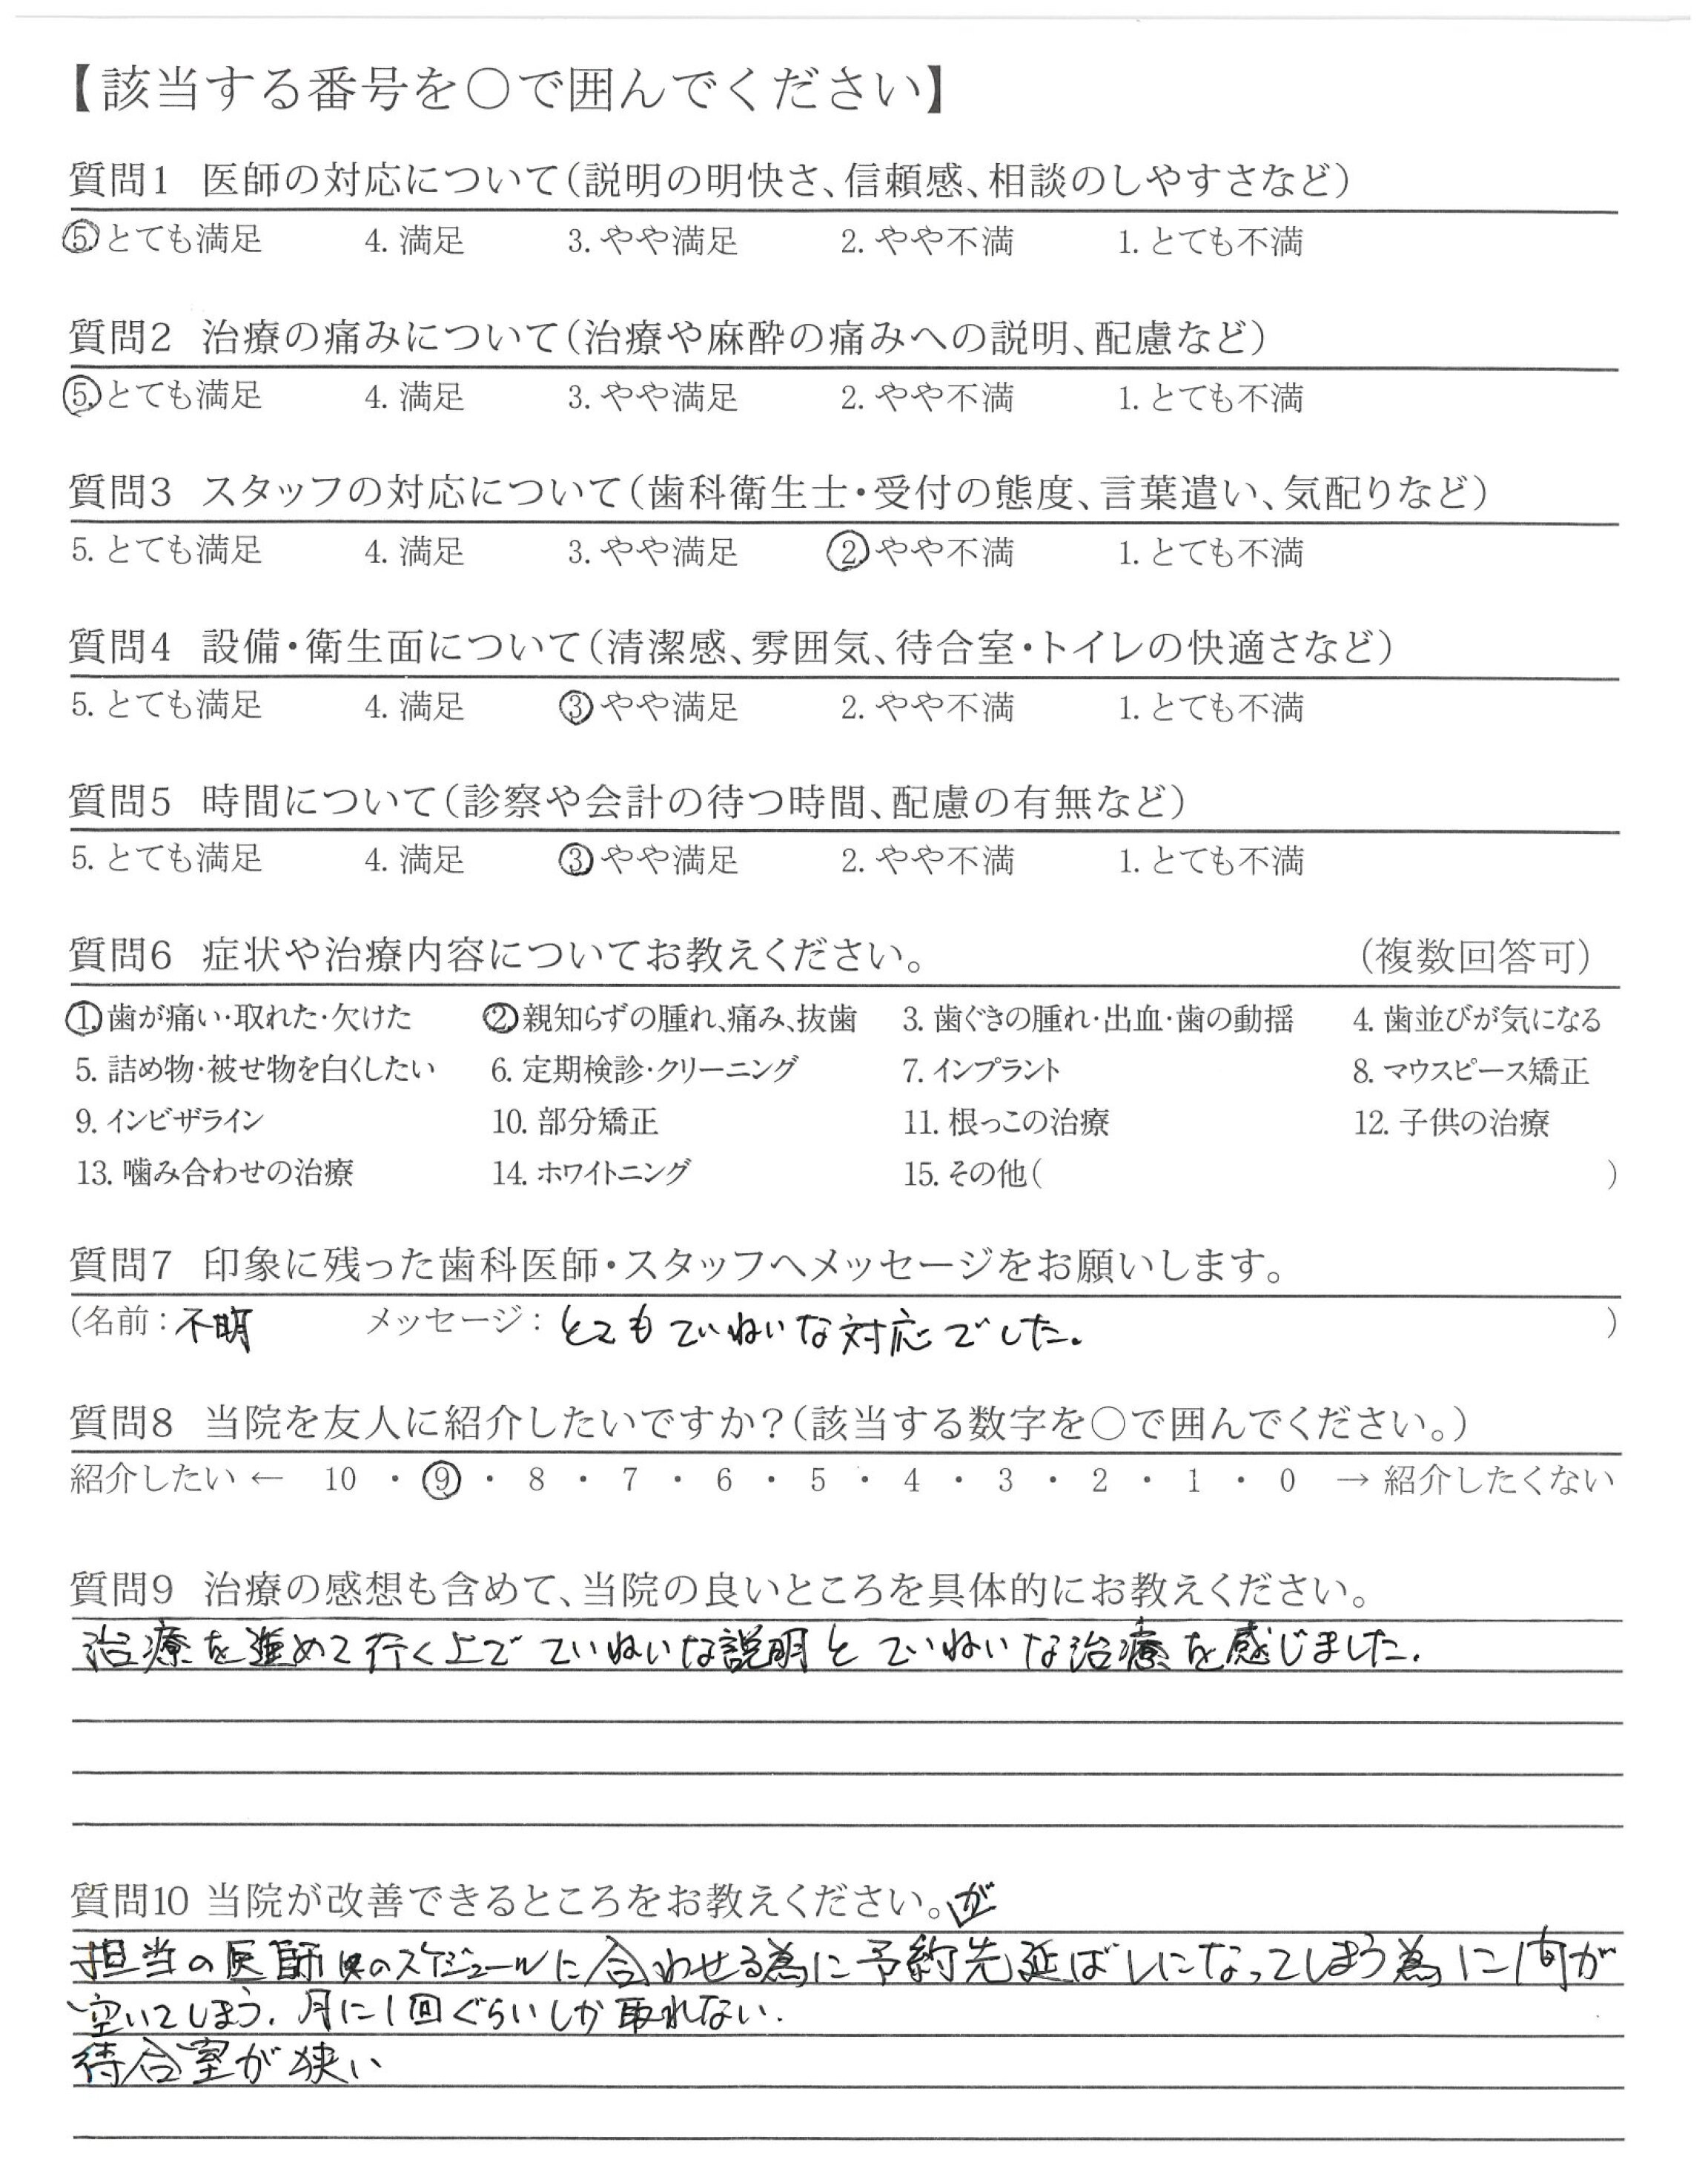 【該当する番号を○で囲んでください】
質問1 医師の対応について（説明の明快さ、信頼感、相談のしやすさなど）
5. とても満足 4. 満足 3. やや満足 2. やや不満 1. とても不満
質問2 治療の痛みについて（治療や麻酔の痛みへの説明、配慮など）
5. とても満足 4. 満足 3. やや満足 2. やや不満 1. とても不満
質問3 スタッフの対応について（歯科衛生士・受付の態度、言葉遣い、気配りなど）
5. とても満足 4. 満足 3. やや満足 2. やや不満 1. とても不満
質問4 設備・衛生面について（清潔感、雰囲気、待合室・トイレの快適さなど）
5. とても満足 4. 満足 3. やや満足 2. やや不満 1. とても不満
質問5 時間について（診察や会計の待つ時間、配慮の有無など）
5. とても満足 4. 満足 3. やや満足 2. やや不満 1. とても不満
質問6 症状や治療内容についてお教えください。 （複数回答可）
1. 歯が痛い・取れた・欠けた 2. 親知らずの腫れ、痛み、抜歯 3. 歯ぐきの腫れ・出血・歯の動揺 4. 歯並びが気になる
5. 詰め物・被せ物を白くしたい 6. 定期検診・クリーニング 7. インプラント 8. マウスピース矯正
9. インビザライン 10. 部分矯正 11. 根っこの治療 12. 子供の治療
13. 噛み合わせの治療 14. ホワイトニング 15. その他（ ）
質問7 印象に残った歯科医師・スタッフへメッセージをお願いします。
（名前：不明 メッセージ：とてもていねいな対応でした。 ）
質問8 当院を友人に紹介したいですか？（該当する数字を○で囲んでください。）
紹介したい ← 10 ・ 9 ・ 8 ・ 7 ・ 6 ・ 5 ・ 4 ・ 3 ・ 2 ・ 1 ・ 0 → 紹介したくない
質問9 治療の感想も含めて、当院の良いところを具体的にお教えください。
治療を進めて行く上でていねいな説明とていねいな治療を感じました。
質問10 当院が改善できるところをお教えください。
が
担当の医師のスケジュールに合わせる為に予約先延ばしになってしまう為に間が
空いてしまう。月に1回ぐらいしか取れない。
待合室が狭い